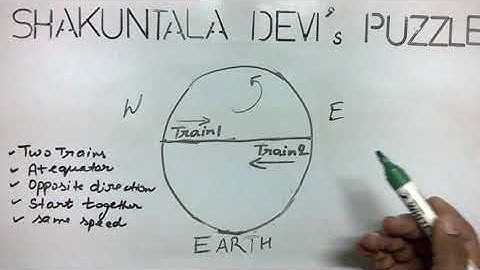 SHAKUNTALA DEVI's PUZZLE
W
E
Train1
Train2
Two Trains
At equator
Opposite direction
Start together
same speed
EARTH